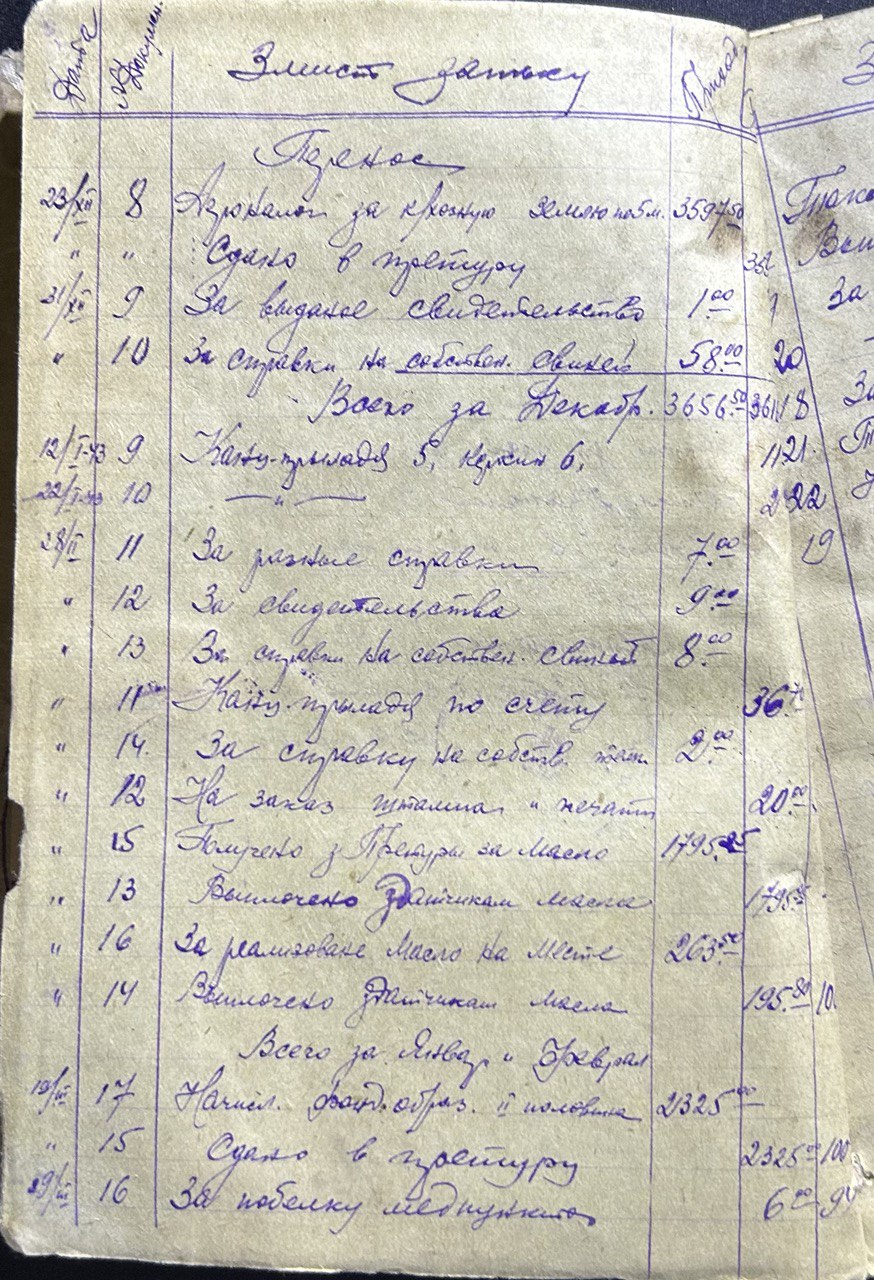 Дата № Докумен. Змист запысу Приход
Перенос
23/XII 8 Агроналог за к/хозную землю по 5 м. 3597.50
" " Сдано в претуру
31/XII 9 За выданое свидетельство 1.00
" 10 За справки на собствен. свиней 58.00 20
Всего за Декабр. 3656.50 3617 8
12/I-43 9 Канц-прыладдя 5, 6, 21
22/I-43 10 — " — 22
28/II 11 За разные справки 7.00 19
" 12 За свидетельства 9.00
" 13 За справки на собствен. свиней 8.00
" 11 Канц-прыладдя по счету 36.
" 14. За справку на собств. 2.00
" 12 На заказ штампа и печати 20.00
" 15 Получено з Претуры за масло 1795.85
" 13 Выплочено здатчикам масла 1795.85
" 16 За реализоване масло на месте 263.50
" 14 Выплочено здатчикам масла 195.80 10.
Всего за Январ и Феврал
19/III 17 Начисл. фонд. образ. II половина 2325.00
" 15 Сдано в претуру 2325.00 100
29/III 16 За побелку медпункта 6.00